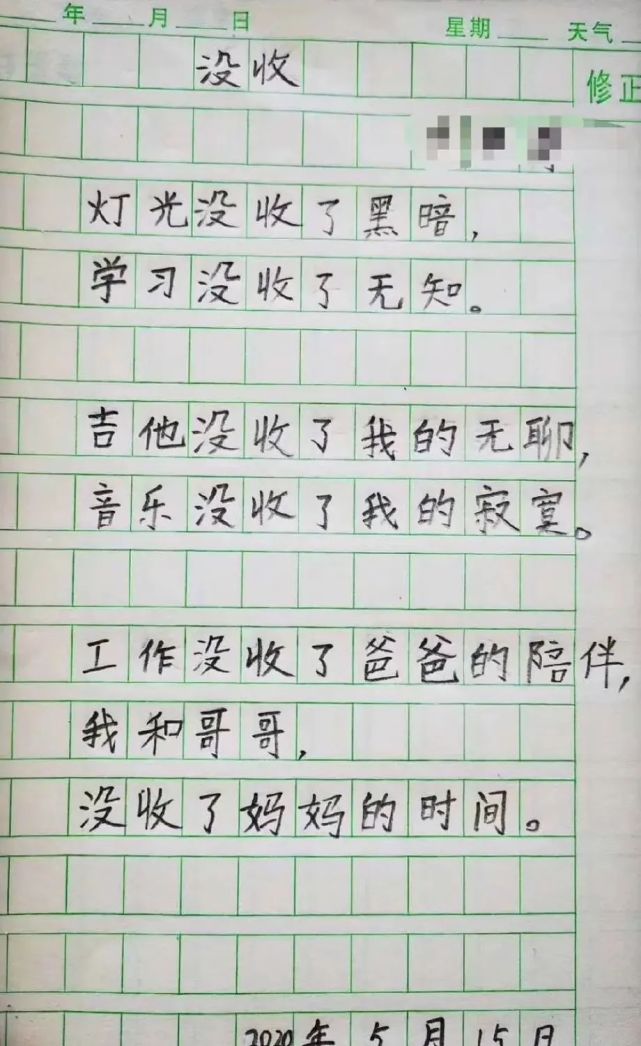 年 月 日 星期 天气
没收
修正
灯光没收了黑暗,
学习没收了无知。
吉他没收了我的无聊,
音乐没收了我的寂寞。
工作没收了爸爸的陪伴,
我和哥哥,
没收了妈妈的时间。
2020年5月15日